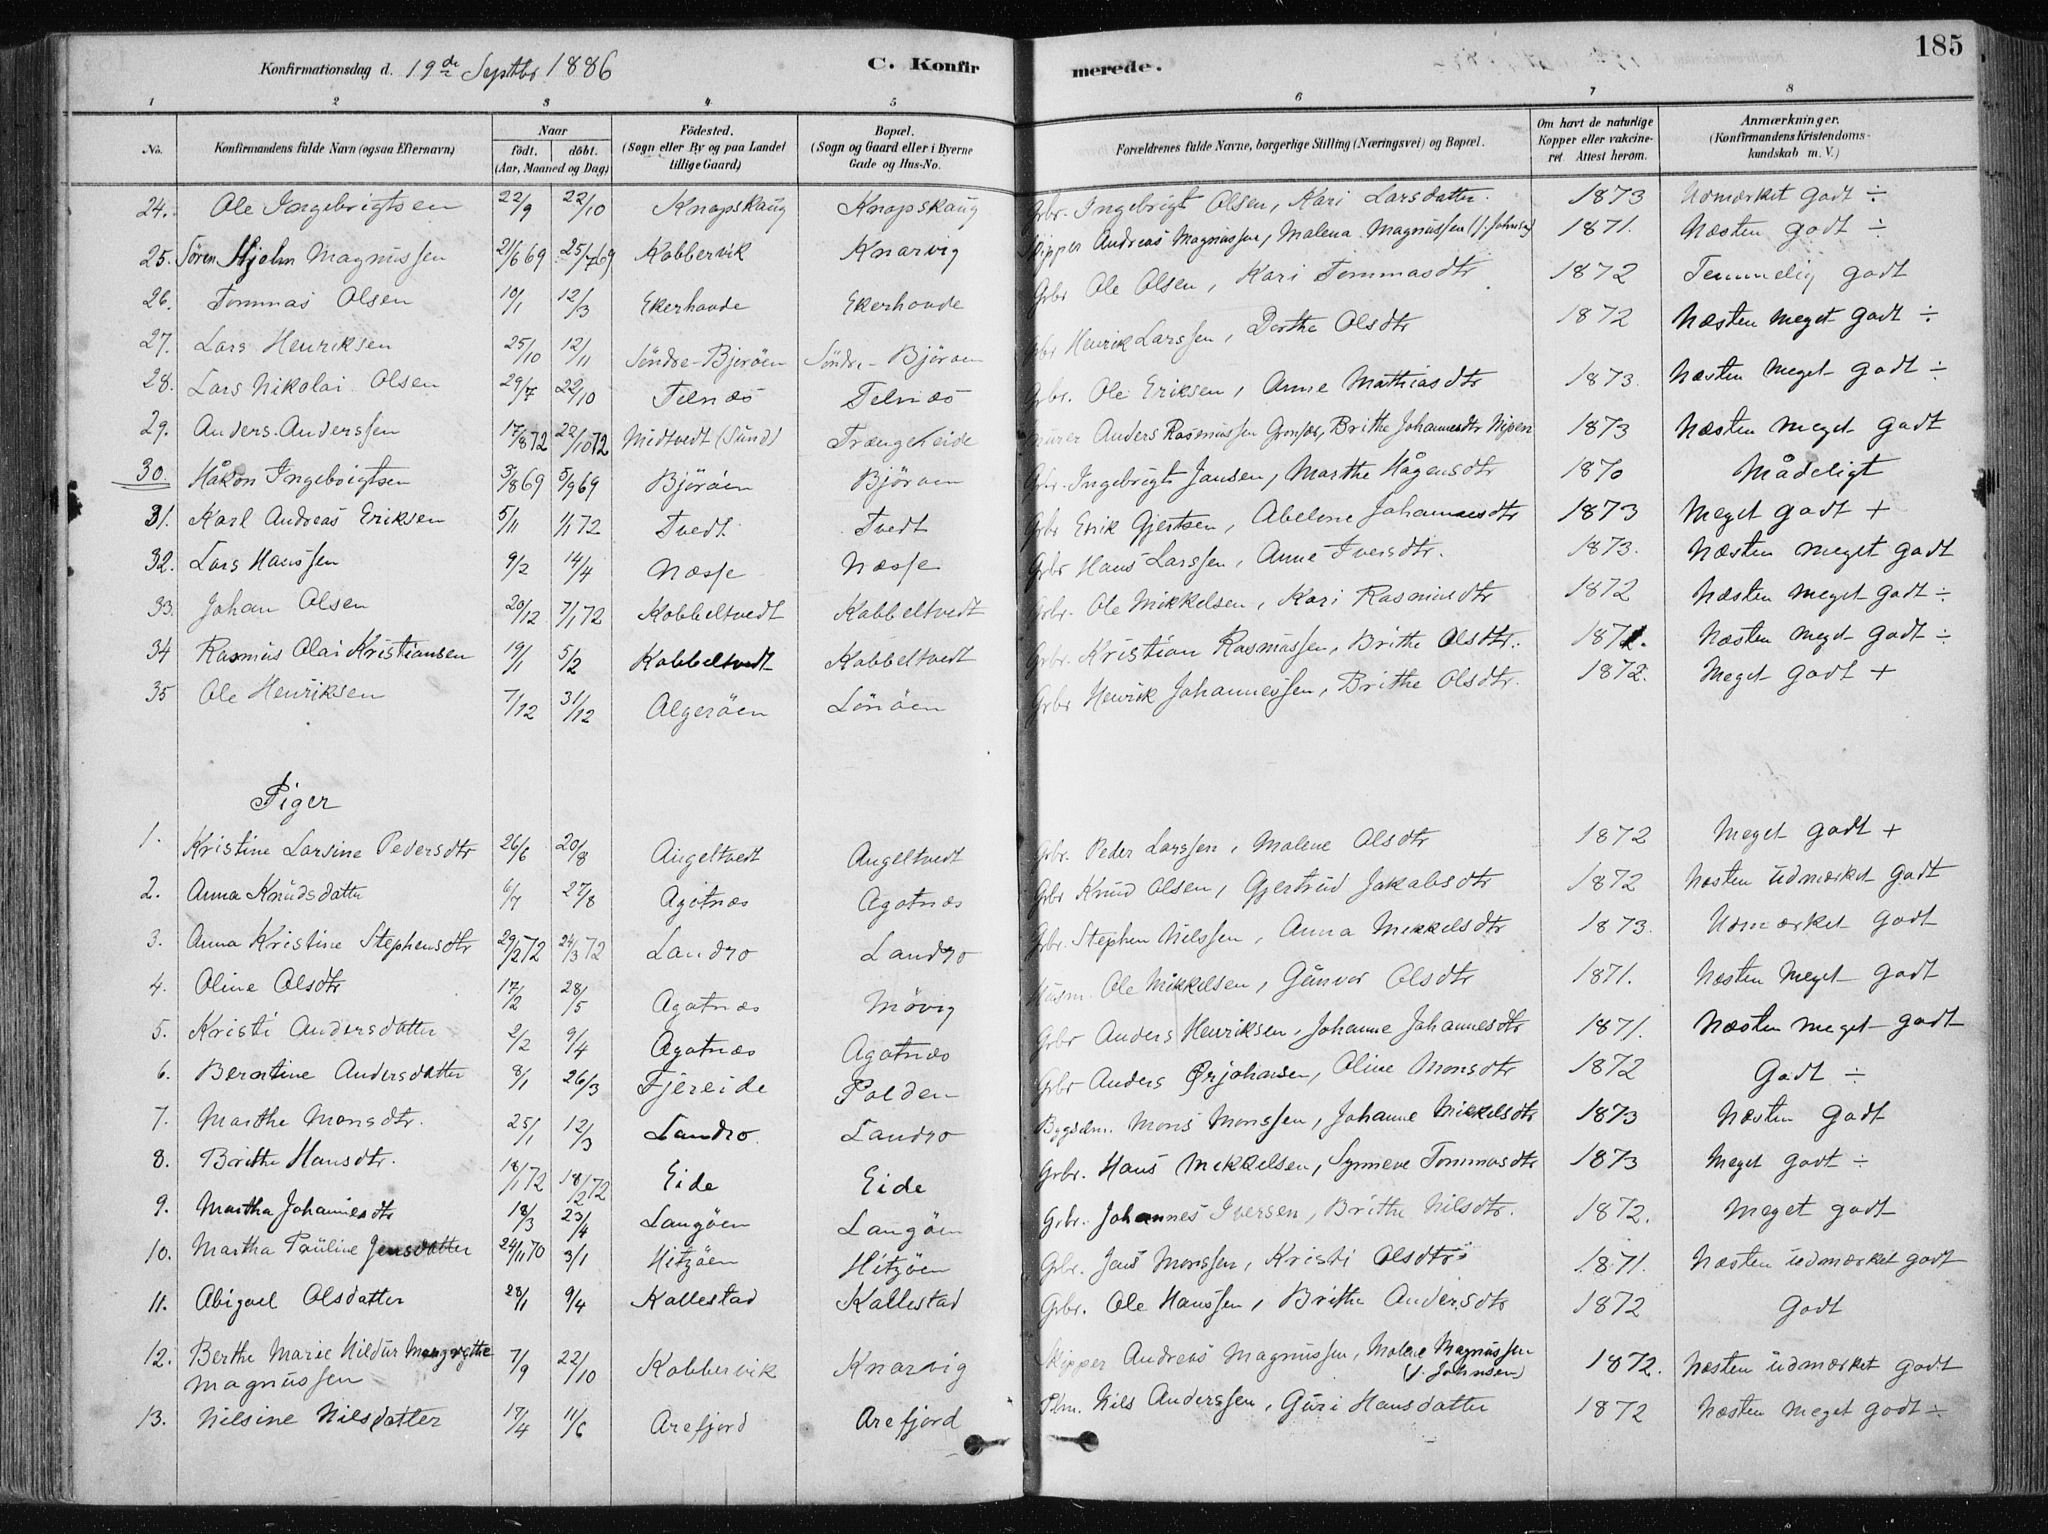 185
Konfirmationsdag d. 19de Septbr 1886 C. Konfirmerede.
1 2 3 4 5 6 7 8
No. Konfirmandens fulde Navn (ogsaa Efternavn) Naar født. døbt. (Aar, Maaned og Dag) Fødested. (Sogn eller By og paa Landet tillige Gaard) Bopæl. (Sogn og Gaard eller i Byerne Gade og Hus-No. Forældrenes fulde Navne, borgerlige Stilling (Næringsvei) og Bopæl. Om havt de naturlige Kopper eller vakcineret. Attest herom. Anmærkninger. (Konfirmandens Kristendomskundskab m. V.)
24. Ole Ingebrigtsen 22/9 22/10 Knapskaug Knapskaug Grbr. Ingebrigt Olsen, Kari Larsdatter. 1873 Udmærket godt ÷
25. Sören Hjohn Magnussen 21/6 69 25/7 69 Kobbervik Knarvig Skipper Andreas Magnussen, Malena Magnussen (f. Johnsen) 1871. Næsten godt ÷
26. Tommas Olsen 10/1 12/3 Ekerhovde Ekerhovde Grbr Ole Olsen, Kari Tommasdtr 1872 Temmelig godt
27. Lars Henriksen 25/10 12/11 Söndre-Bjeröen Söndre-Björöen Grbr Henrik Larssen, Dorthe Olsdtr 1872 Næsten meget godt ÷
28. Lars Nikolai Olsen 29/7 22/10 Telnæs Telnæs Grbr. Ole Eriksen, Anne Mathiasdtr 1873. Næsten meget godt ÷
29. Anders Anderssen 17/8 72 22/10 72 Midtvedt (Sund) Trængereide Murer Anders Rasmussen, Brithe Johannesdtr Nipen 1873 Næsten meget godt
30. Håkon Ingebrigtsen 3/8 69 5/9 69 Björöen Björöen Grbr. Ingebrigt Jansen, Marthe Hågensdtr 1870 Mådeligt
31. Karl Andreas Eriksen 5/11 1/1 72 Tvedt Tvedt Grbr Erik Gjertsen, Abelone Johannesdtr 1873 Meget godt +
32. Lars Hanssen 9/2 14/4 Næsse Næsse Grbr Hans Larssen, Anne Iversdtr. 1873. Næsten meget godt
33. Johan Olsen 20/12 7/1 72 Kobbeltvedt Kobbeltvedt Grbr. Ole Mikkelsen, Kari Rasmusdtr 1872 Næsten meget godt ÷
34 Rasmus Olai Kristiansen 19/1 5/2 Kobbeltvedt Kobbeltvedt Grbr. Kristian Rasmussen, Brithe Olsdtr. 1871. Næsten meget godt ÷
35 Ole Henriksen 7/12 31/12 Algeröen Lönöen Grbr Henrik Johannessen, Brithe Olsdtr. 1872. Meget godt +
Piger
1. Kristine Larsine Pedersdtr 26/6 20/8 Angeltvedt Angeltvedt Grbr. Peder Larssen, Malene Olsdtr 1872 Meget godt +
2. Anna Knudsdatter 6/7 27/8 Agotnæs Agotnæs Grbr Knud Olsen, Gjertrud Jakobsdtr 1872 Næsten udmærket godt
3. Anna Kristine Stephensdtr 29/2 72 24/3 72 Landro Landro Grbr. Stephen Nilssen, Anna Mikkelsdtr 1873. Udmærket godt
4. Oline Olsdtr 17/2 28/5 Agotnæs Mövig Husm. Ole Mikkelsen, Gunvor Olsdtr 1871. Næsten meget godt
5. Kristi Andersdatter 2/2 9/4 Agotnæs Agotnæs Grbr Anders Henriksen, Johanne Johannesdtr 1871. Næsten meget godt
6. Berntine Andersdatter 8/1 26/3 Fjereide Polden Grbr Anders Ørjohansen, Oline Monsdtr 1872 Godt ÷
7. Marthe Monsdtr. 25/1 12/3 Landro. Landro Bygselm. Mons Monssen, Johanne Mikkelsdtr 1873 Næsten godt
8. Brithe Hansdtr. 18/1 72 18/2 72 Eide Eide Grbr. Hans Mikkelsen, Synneve Tommasdtr 1873 Meget godt ÷
9. Martha Johannesdtr 18/3 23/4 Langöen Langöen Grbr. Johannes Iversen, Brithe Nilsdtr. 1872. Meget godt
10. Martha Pauline Jensdatter 24/11 70 3/1 Hitzöen Hitzöen Grbr. Jens Monssen, Kristi Olsdtr 1871. Næsten udmærket godt
11. Abigael Olsdatter 28/1 9/4 Kallestad Kallestad Grbr. Ole Hanssen, Brithe Andersdtr 1872 Godt
12. Berthe Marie Hildur Margrethe Magnussen 7/9 22/10 Kobbervik Knarvig Skipper Andreas Magnussen, Malene Magnussen (f. Johnsen) 1872. Næsten udmærket godt
13. Nilsine Nilsdatter 17/4 11/6 Arefjord Arefjord Plm. Nils Anderssen, Guri Hansdatter 1872 Næsten meget godt ÷